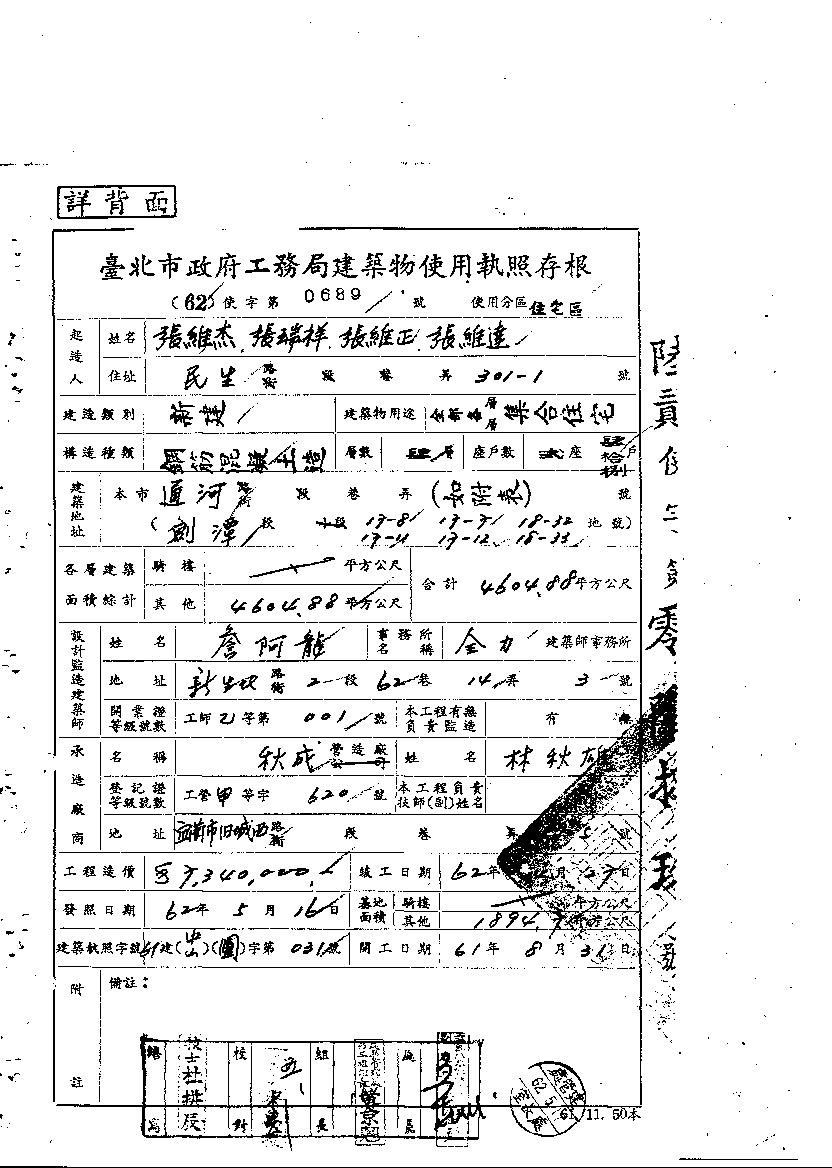 詳背面
臺北市政府工務局建築物使用執照存根
(62)使字第 0689 號 使用分區住宅區
起造人 姓名 張維杰、張瑞祥、張維正、張維達
住址 民生路街 段 巷 弄 301-1 號
建造類別 新建 建築物用途 全部各層層集合住宅
構造種類 鋼筋混凝土造 層數 層 座戶數 座 戶
建築地址 本市 通河路街 段 巷 弄 (如附表) 號
(劍潭段 段 17-8 18-32 地號)
17-11 17-12 18-33
各層建築面積綜計 騎樓 平方公尺 合計 4604.88平方公尺
其他 4604.88 平方公尺
設計監造建築師 姓名 詹阿龍 事務所名稱 全力 建築師事務所
地址 新生北路街 2段 62巷 14弄 3號
開業證等級號數 工師乙等第 001 號 本工程有無負責監造 有
承造廠商 名稱 秋成營造廠公司 姓名 林秋雄
登記證等級號數 工營甲等字 620 號 本工程負責技師(副)姓名
地址 宜蘭市旧城西路街 段 巷 號
工程造價 竣工日期 62年 月 27日
發照日期 62年 5月 16日 基地面積 騎樓 平方公尺
其他 1894. 平方公尺
建築執照字號 61建( )(圓)字第 031號 開工日期 61年 8月 31日
附註 備註：
繕寫 技士杜拱辰 校對 組長 施 員
61.11.50本